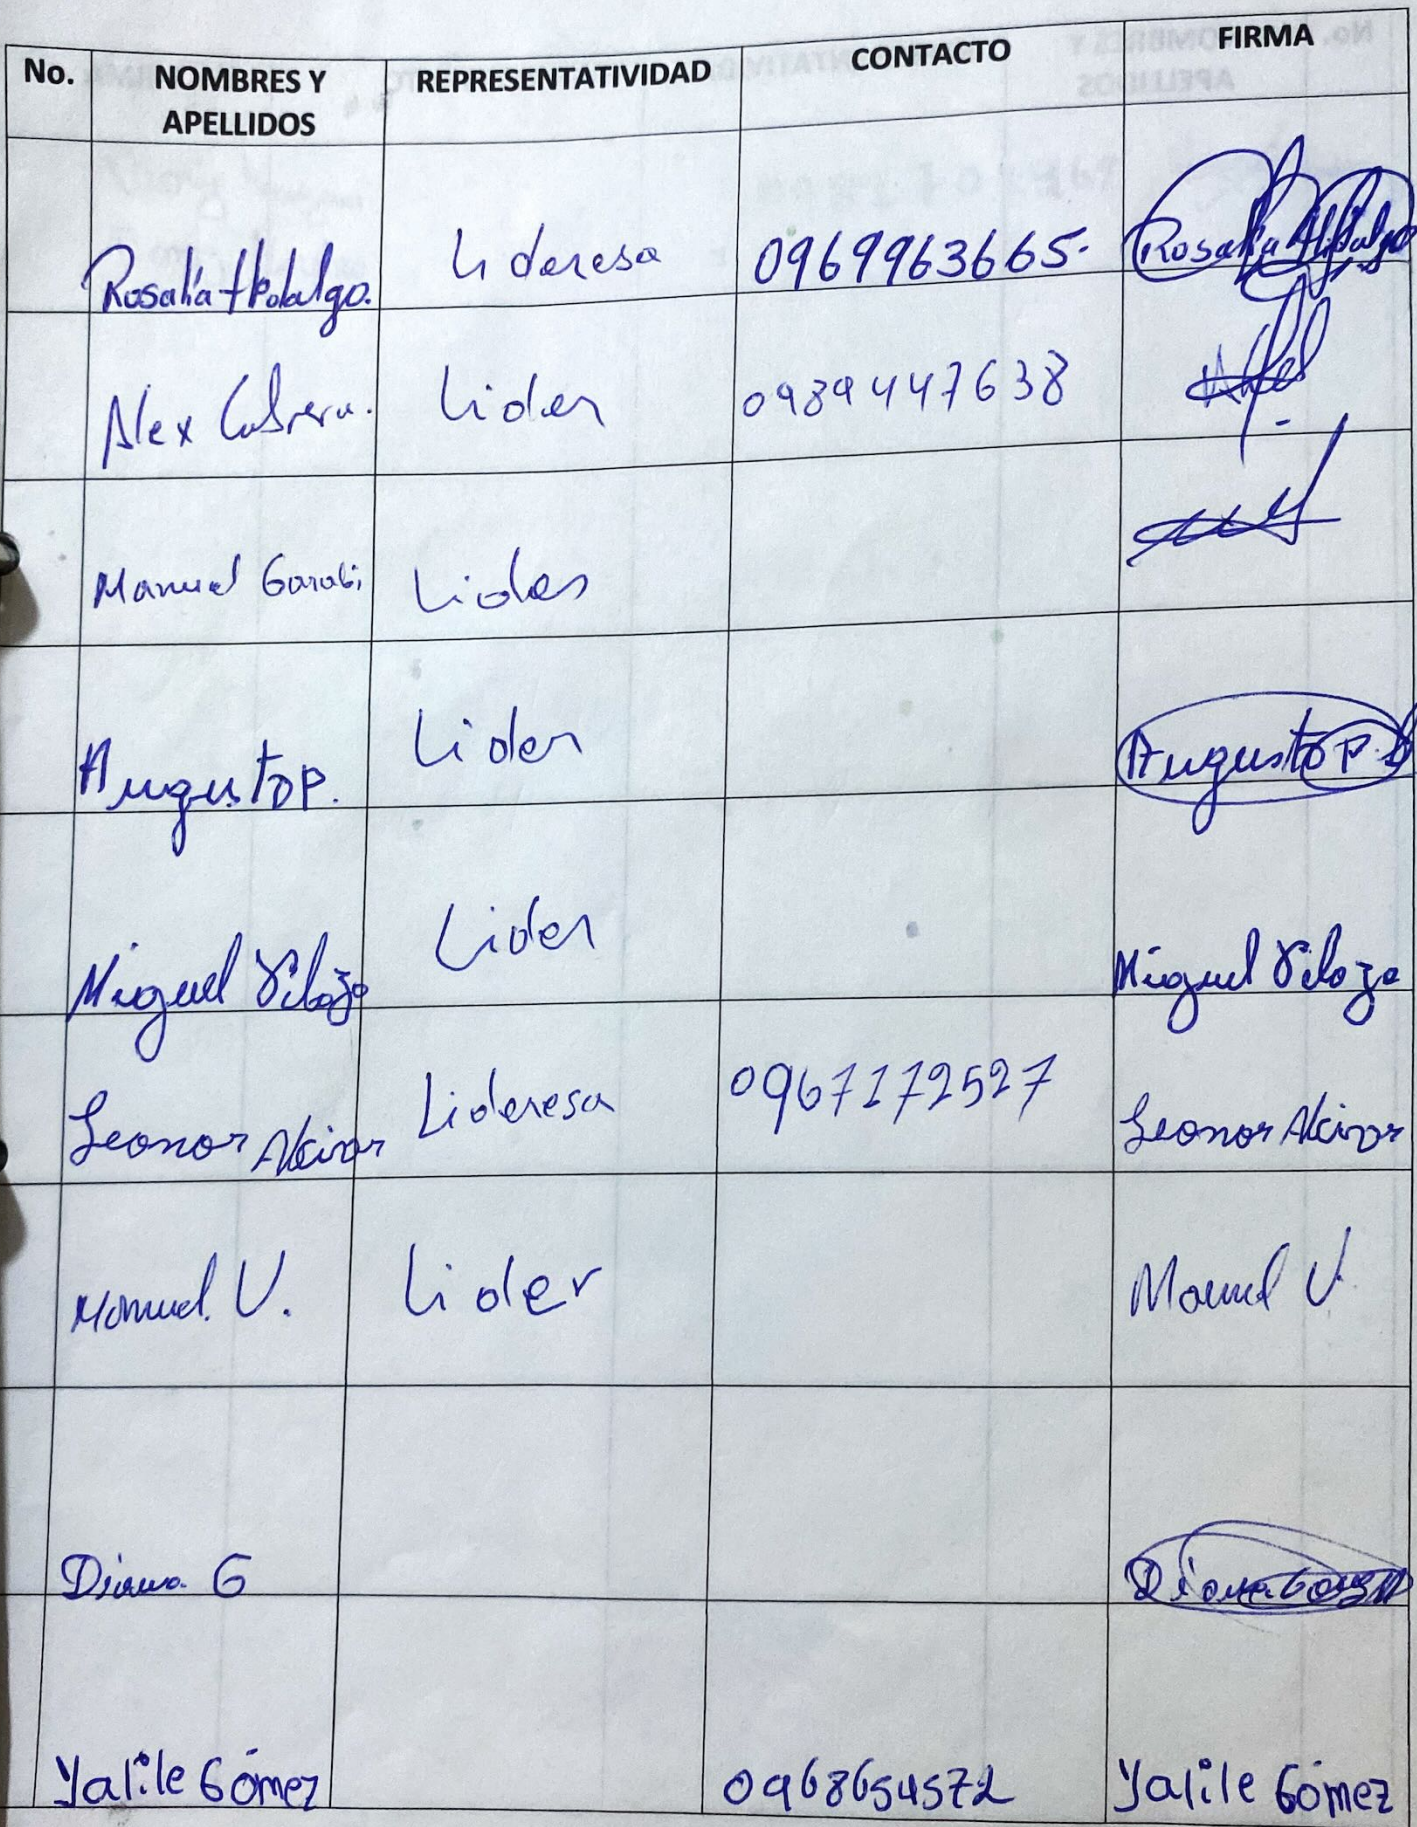 No. NOMBRES Y APELLIDOS REPRESENTATIVIDAD CONTACTO FIRMA
Rosalía Hidalgo. Lideresa 0969963665. Rosalía Hidalgo
Alex Cabrera. Lider 0989447638
Manuel Lider
Augusto P. Lider Augusto P.
Miguel Lider Miguel
Leonor Alcivar Lideresa 0967172527 Leonor Alcivar
Manuel. V. Lider Manuel V.
Diana G Diana
Yalile Gómez 0968654572 Yalile Gómez